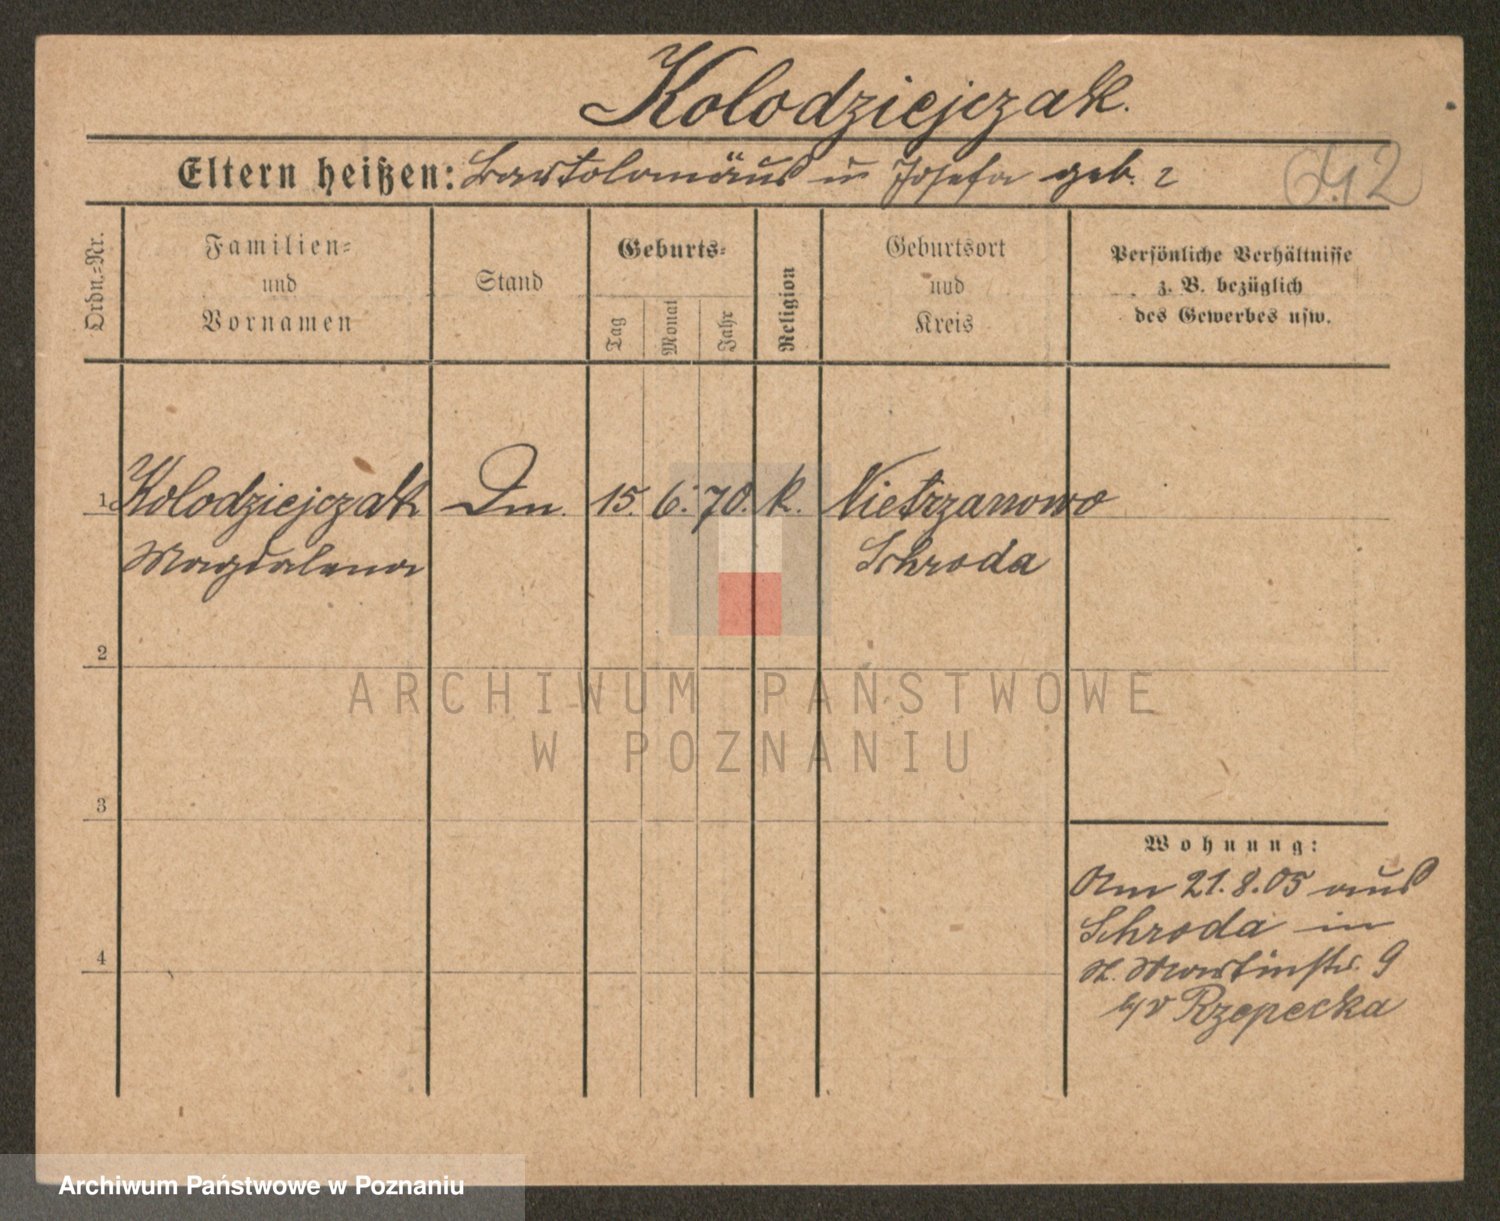 Kolodziejczak.
Eltern heißen: Bartolomäus u Josefa geb. ?
642
Ordn.=Nr.
Familien=
und
Vornamen
Stand
Geburts=
Tag
Monat
Jahr
Religion
Geburtsort
und
Kreis
Persönliche Verhältnisse
z. B. bezüglich
des Gewerbes usw.
1 Kolodziejczak Dm. 15. 6. 70. k. Nietrzanowo
Magdalena Schroda
2
3
4
Wohnung:
Am 21.8.05 aus
Schroda in
St. Martinstr. 9
b/v Rzepecka
ARCHIWUM PAŃSTWOWE
W POZNANIU
Archiwum Państwowe w Poznaniu